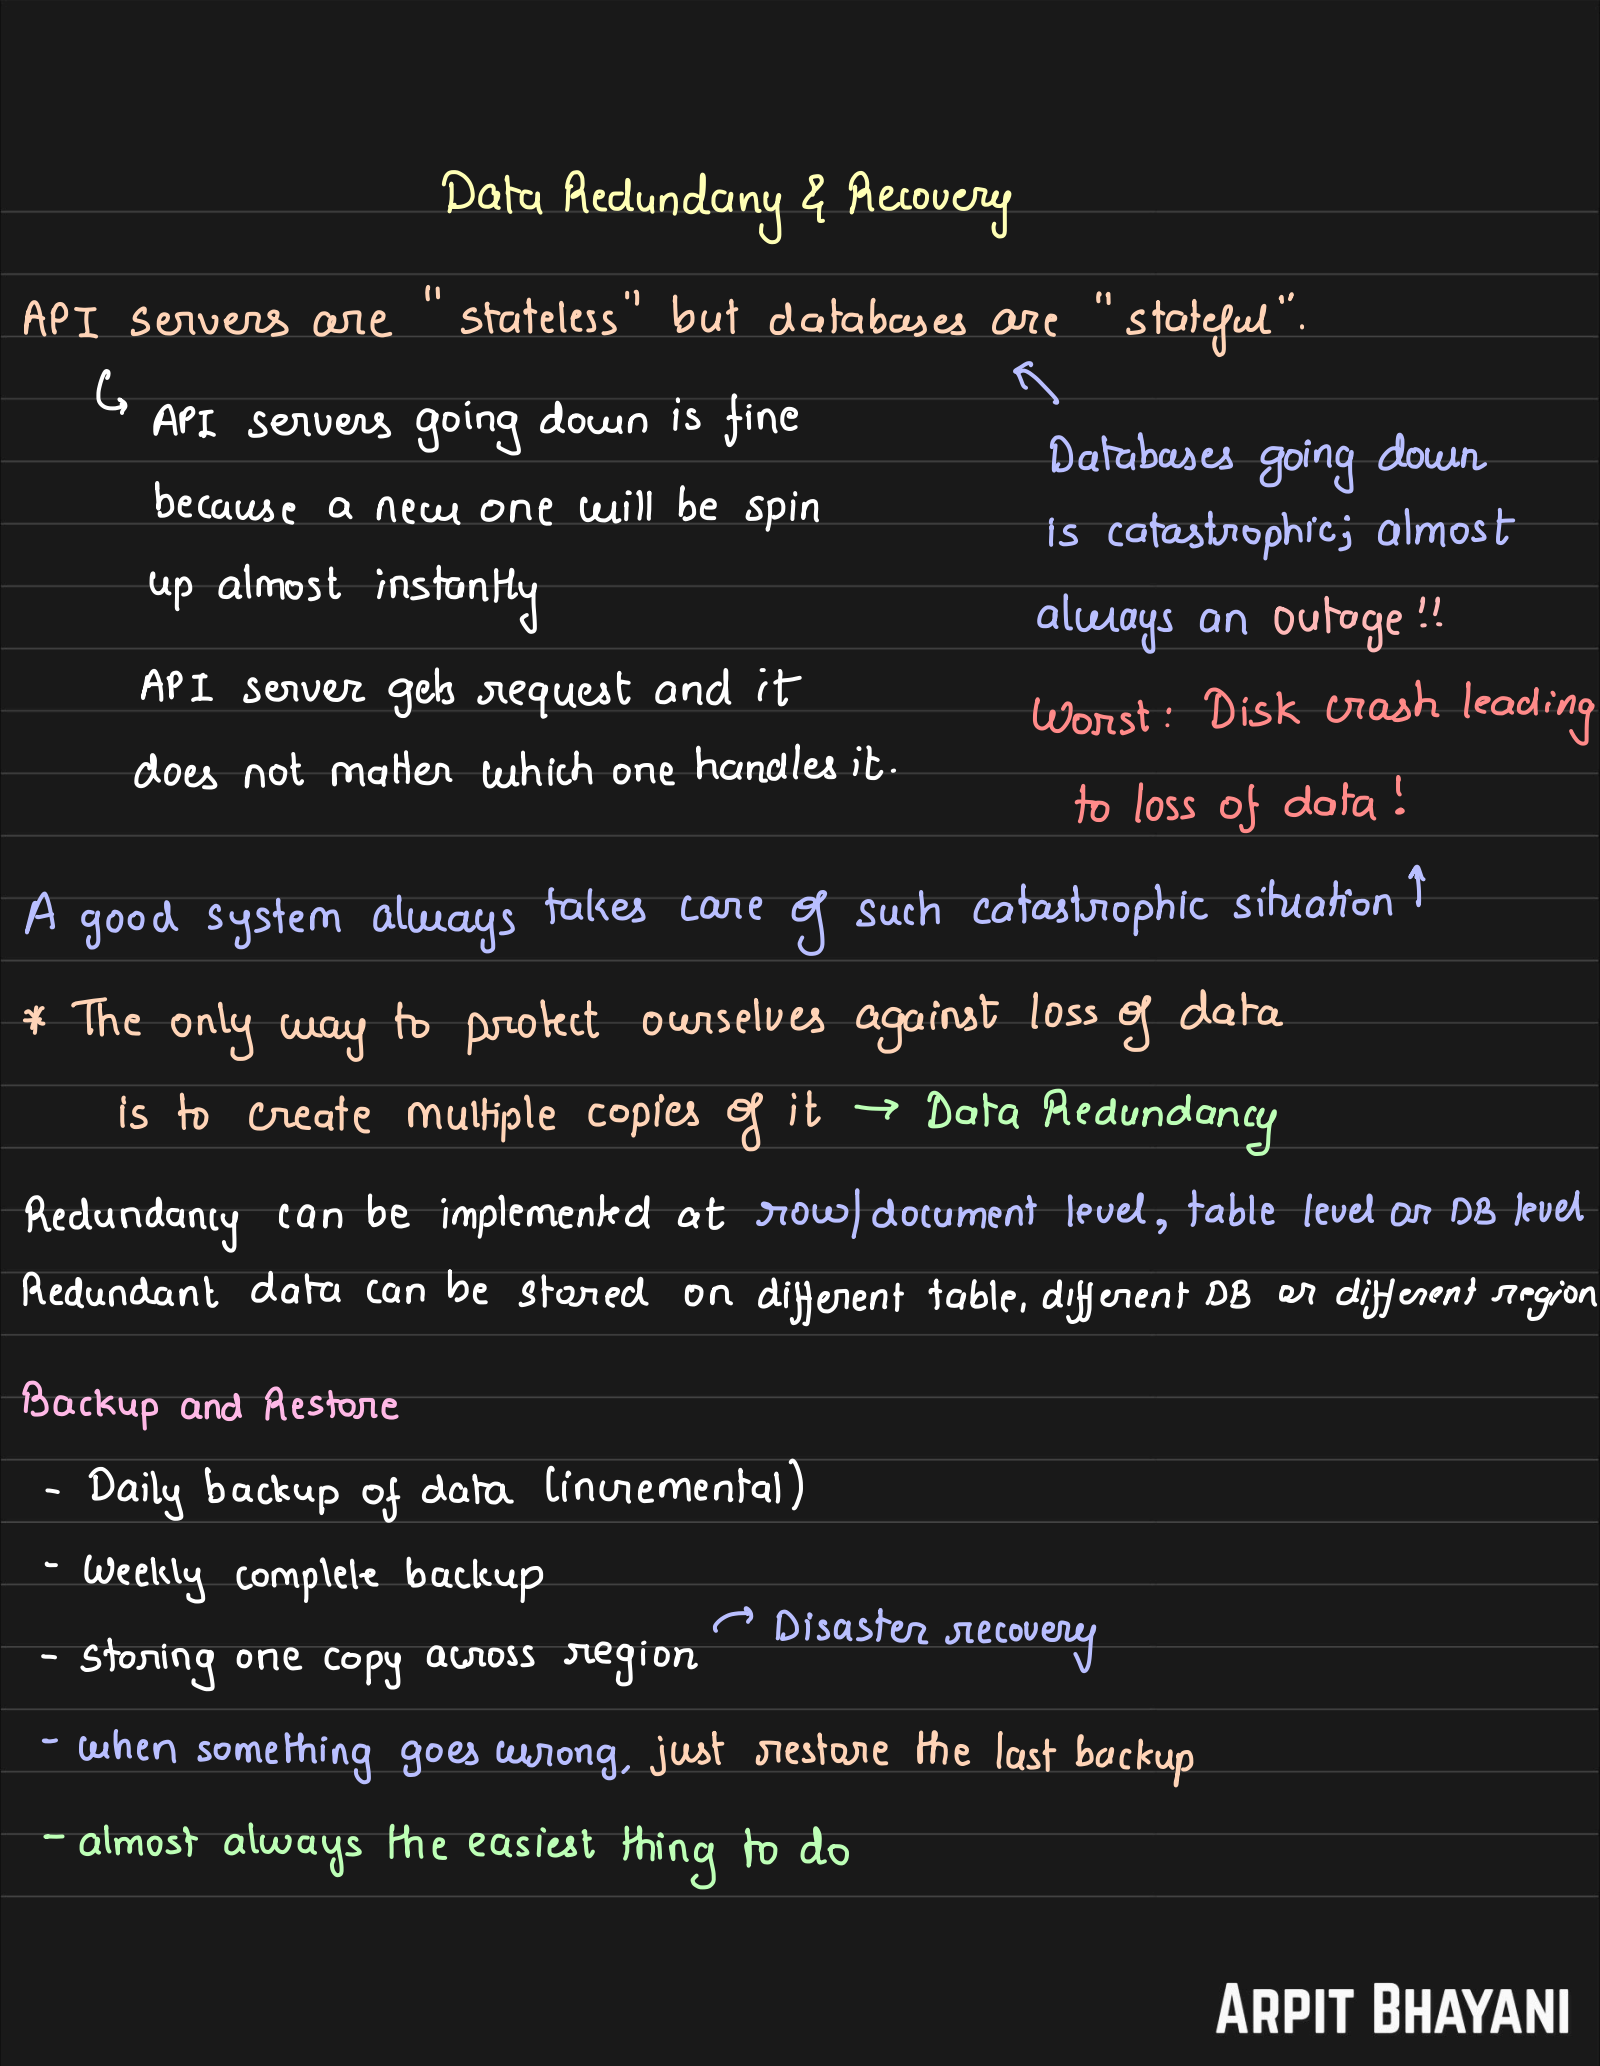 Data Redundany & Recovery
API servers are "stateless" but databases are "stateful".
API servers going down is fine
because a new one will be spin
up almost instantly
API server gets request and it
does not matter which one handles it.
Databases going down
is catastrophic; almost
always an outage!!
Worst: Disk crash leading
to loss of data!
A good system always takes care of such catastrophic situation ↑
* The only way to protect ourselves against loss of data
is to create multiple copies of it → Data Redundancy
Redundancy can be implemented at row/document level, table level or DB level
Redundant data can be stored on different table, different DB or different region
Backup and Restore
- Daily backup of data (incremental)
- Weekly complete backup
- Storing one copy across region → Disaster recovery
- when something goes wrong, just restore the last backup
- almost always the easiest thing to do
ARPIT BHAYANI